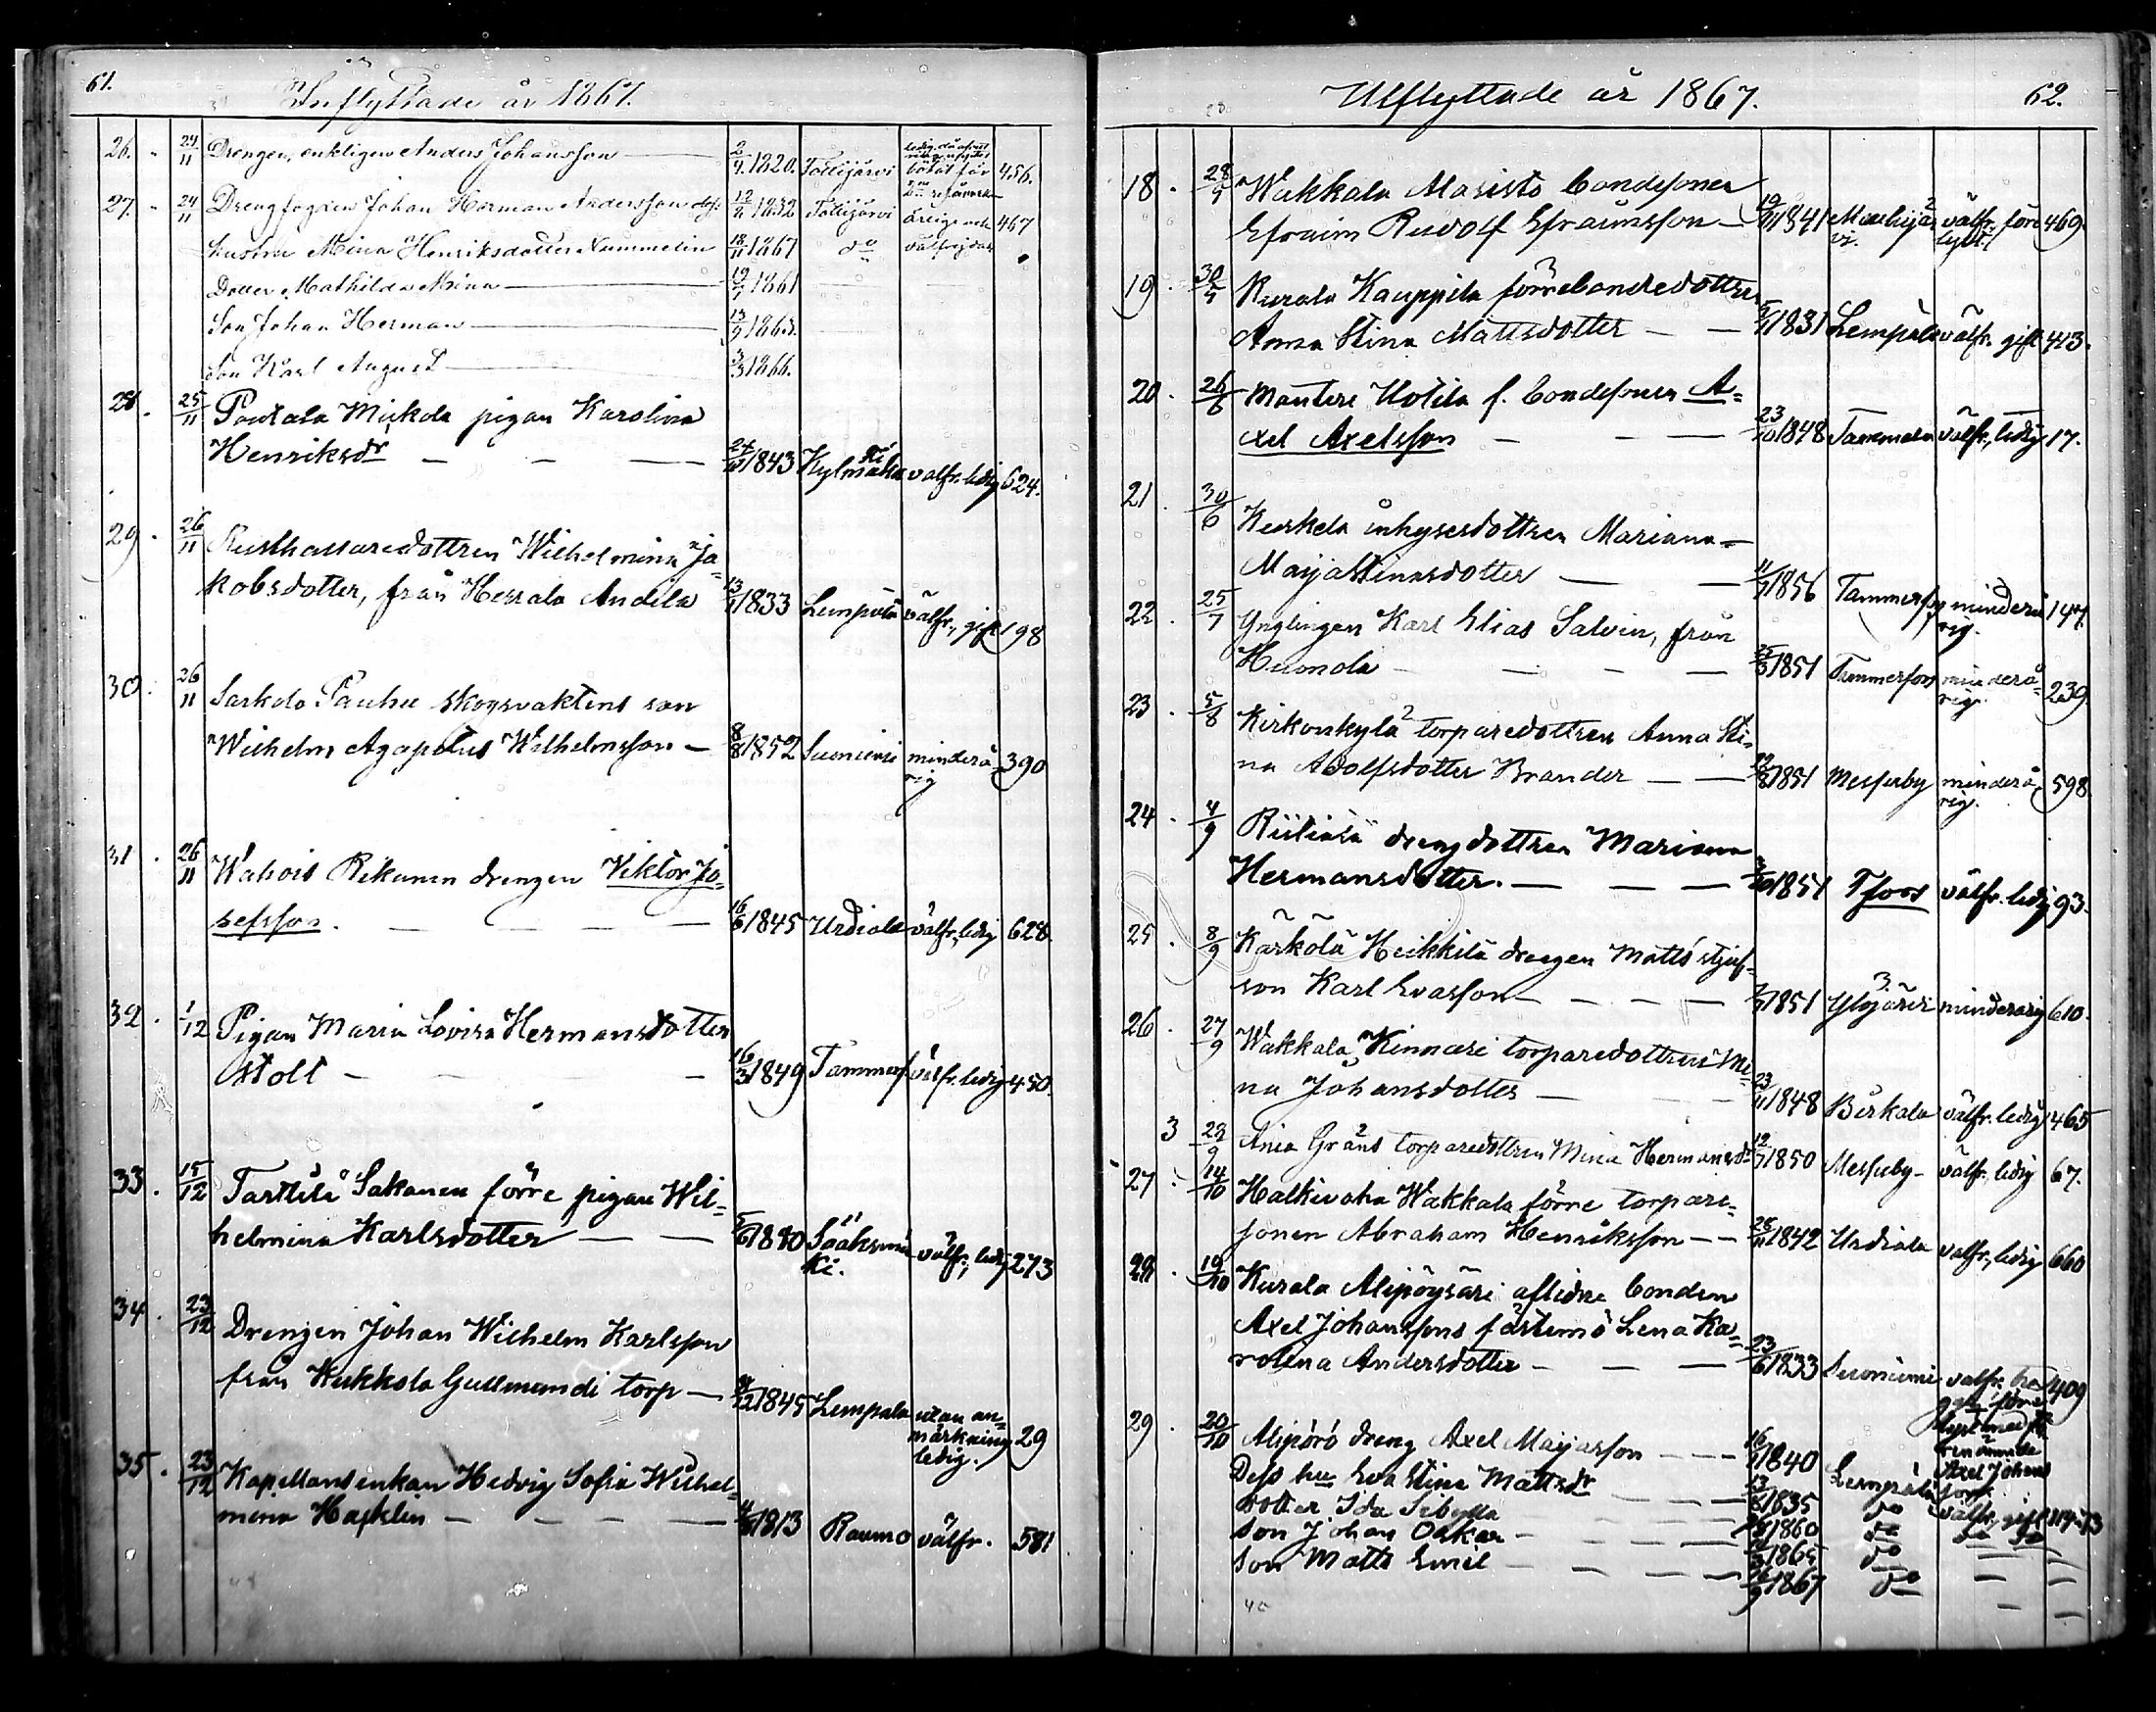 61.
Inflyttade år 1867.
26. " 24/11 Drengen, enklingen Anders Johansson — 2/4 1820. Tottijärvi ledig, 456.
27. " 24/11 Drengfogden Johan Herman Andersson 12/2 1832 Tottijärvi ärliga och 467
hustru Mina Henriksdotter Nummelin 18/11 1867 do välfrejdade
Dotter Mathilda Mina — 19/7 1861
Son Johan Herman — 13/9 1863.
Son Karl August — 3/3 1866.
28. 25/11 Poutala Mickola pigan Karolina
Henriksdr — — — 1843 Kylmäkoski välfr. ledig 624.
29. 26/11 Rusthallaredottren Wilhelmina Ja-
kobsdotter, från Herrala Andela 1833 Lempälä välfr., gift 198
30. 26/11 Sarkola Pauhu skogsvaktens son
Wilhelm Agapetus Wilhelmsson — 8/8 1852 Suoniemi minderå- 390
rig
31. 26/11 Wahois Rekunen drengen Viktor Jo-
sefsson. — — — 16/6 1845 Urdiala välfr., ledig 628.
32. 1/12 Pigan Maria Lovisa Hermansdotter
Stolt — — — 16/3 1849 Tammerf. välfr. ledig 450.
33. 15/12 Tarttila Sakanen förre pigan Wil-
helmina Karlsdotter — — 5/6 1840 Sääksmä- välfr., ledig 273
ki.
34. 23/12 Drengen Johan Wilhelm Karlsson
från Kukkola Gullmandi torp — 1845 Lempälä utan an- 29
märkning
ledig.
35. 23/12 Kapellansenkan Hedvig Sofia Wilhel-
mina Hacklin — — — — 1813 Raumo välfr. 581
62.
Utflyttade år 1867.
18. Wakkala Maristo bondesonen
Efraim Rudolf Efraimsson — 1841 Mouhijär- välfr. före 469.
vi. lyst.
19. 30/5 Kurala Kauppila förre bondedottren
Anna Stina Mattsdotter — — 1831 Lempälä välfr. gift 413.
20. 26/6 Mantere Uotila f. bondesonen A-
xel Axelsson — — — 23/10 1848 Tammela välfr., ledig 17.
21. 30/6 Kurkela inhysesdottren Mariana
Maija Stinasdotter — — 11/7 1856 Tammerfors minderå- 147.
rig.
22. 25/7 Ynglingen Karl Elias Salvin, från
Huonola — — — — 1851 Tammerfors minderå- 239.
rig.
23. 5/8 Kirkonkylä torparedottren Anna Sti-
na Adolfsdotter Brander — — 1851 Messuby minderå- 598.
rig.
24. 4/9 drengdottren Mariana
Hermansdotter. — — — 1851 Tfors välfr. ledig 93.
25. 8/9 Kärkölä Heikkilä drengen Matts styf-
son Karl Evasson — — — 1851 Ylöjärvi minderårig 610.
26. 27/9 Wakkala Kinnari torparedottren Mi-
na Johansdotter — — 23/11 1848 Birkala välfr. ledig 465
3 29/9 Ania Gräns torparedottren Mina Hermansdr 12/7 1850 Messuby välfr. ledig 67.
27. 14/10 Halkivaha Wakkala förre torpare-
sonen Abraham Henriksson — — 1842 Urdiala välfr., ledig 660
28. 19/10 Kurala Alipöysäri aflidne bonden
Axel Johanssons fästemö Lena Ka-
rolina Andersdotter — — 23/6 1833 Suoniemi välfr. 409
Axel Johans
son.
29. 20/10 Alipörö dreng Axel Maijasson — — 16/7 1840 Lempälä välfr., gift
Dess hu Eva Stina Mattsdr — — 1835 do
dotter Ida Sibylla — — 1860 do
son Johan Oskar — — 1865 do
son Matts Emil — — 1867 do